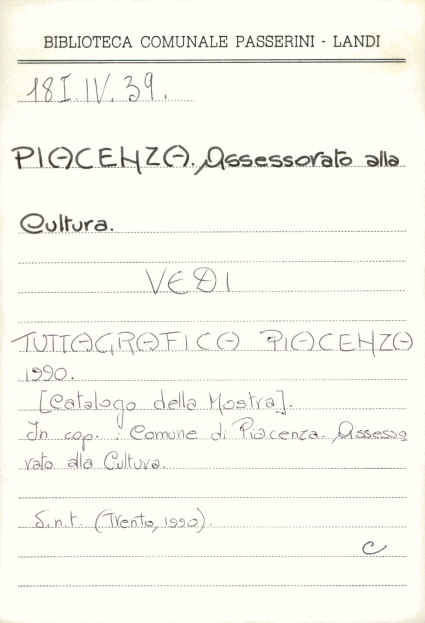 BIBLIOTECA COMUNALE PASSERINI - LANDI
18I.IV.39.
PIACENZA. Assessorato alla
Cultura.
VEDI
TUTTAGRAFICA PIACENZA
1990.
[Catalogo della Mostra].
In cop. : Comune di Piacenza. Assesso
rato alla Cultura.
S.n.t. (Trento, 1990).
C